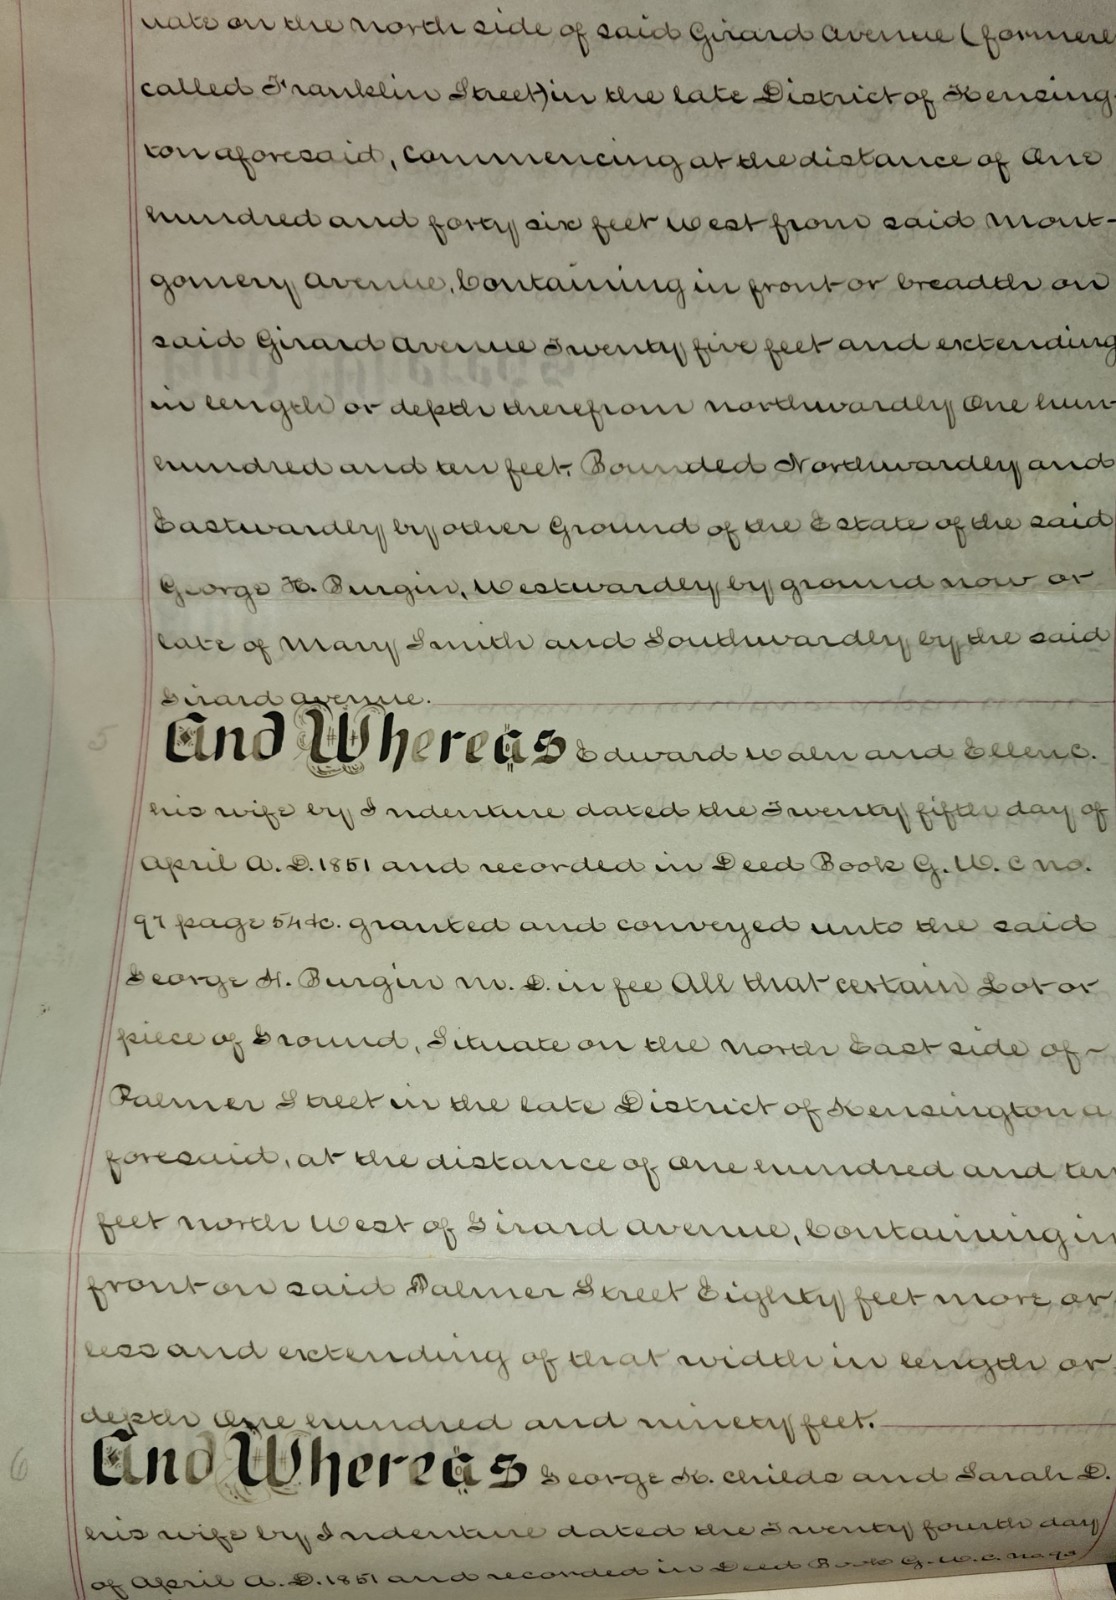 uate on the north side of said Girard Avenue (formerl
called Franklin Street) in the late District of Kensing-
ton aforesaid, Commencing at the distance of One
hundred and forty six feet West from said Mont-
gomery Avenue, Containing in front or breadth on
said Girard Avenue Twenty five feet and extending
in length or depth therefrom northwardly One hun-
hundred and ten feet. Bounded Northwardly and
Eastwardly by other Ground of the Estate of the said
George H. Burgin, Westwardly by ground now or
late of Mary Smith and Southwardly by the said
Girard Avenue.
5
And Whereas Edward Waln and Ellen C.
his wife by Indenture dated the Twenty fifth day of
April A.D. 1851 and recorded in Deed Book G.W.C no.
97 page 54 &c. granted and conveyed unto the said
George H. Burgin M.D. in fee All that certain Lot or
piece of Ground, Situate on the North East side of
Palmer Street in the late District of Kensington a
foresaid, at the distance of One hundred and ten
feet North West of Girard Avenue, Containing in
front on said Palmer Street Eighty feet more or
less and extending of that width in length or
depth One hundred and ninety feet.
6
And Whereas George K. Childs and Sarah D.
his wife by Indenture dated the Twenty fourth day
of April A.D. 1851 and recorded in Deed Book G.W.C. No